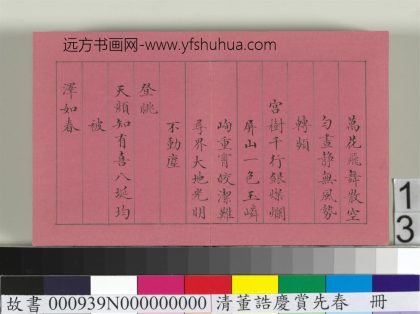 远方书画网-www.yfshuhua.com
萬花飛舞散空
勻晝静無風勢
轉頻
宮樹千行銀燦爛
屏山一色玉嶙
峋重霄皎潔難
尋界大地光明
不動塵
登眺
天顏知有喜八埏均
被
澤如春
13
故書 000939N000000000 清董誥慶賞先春 冊